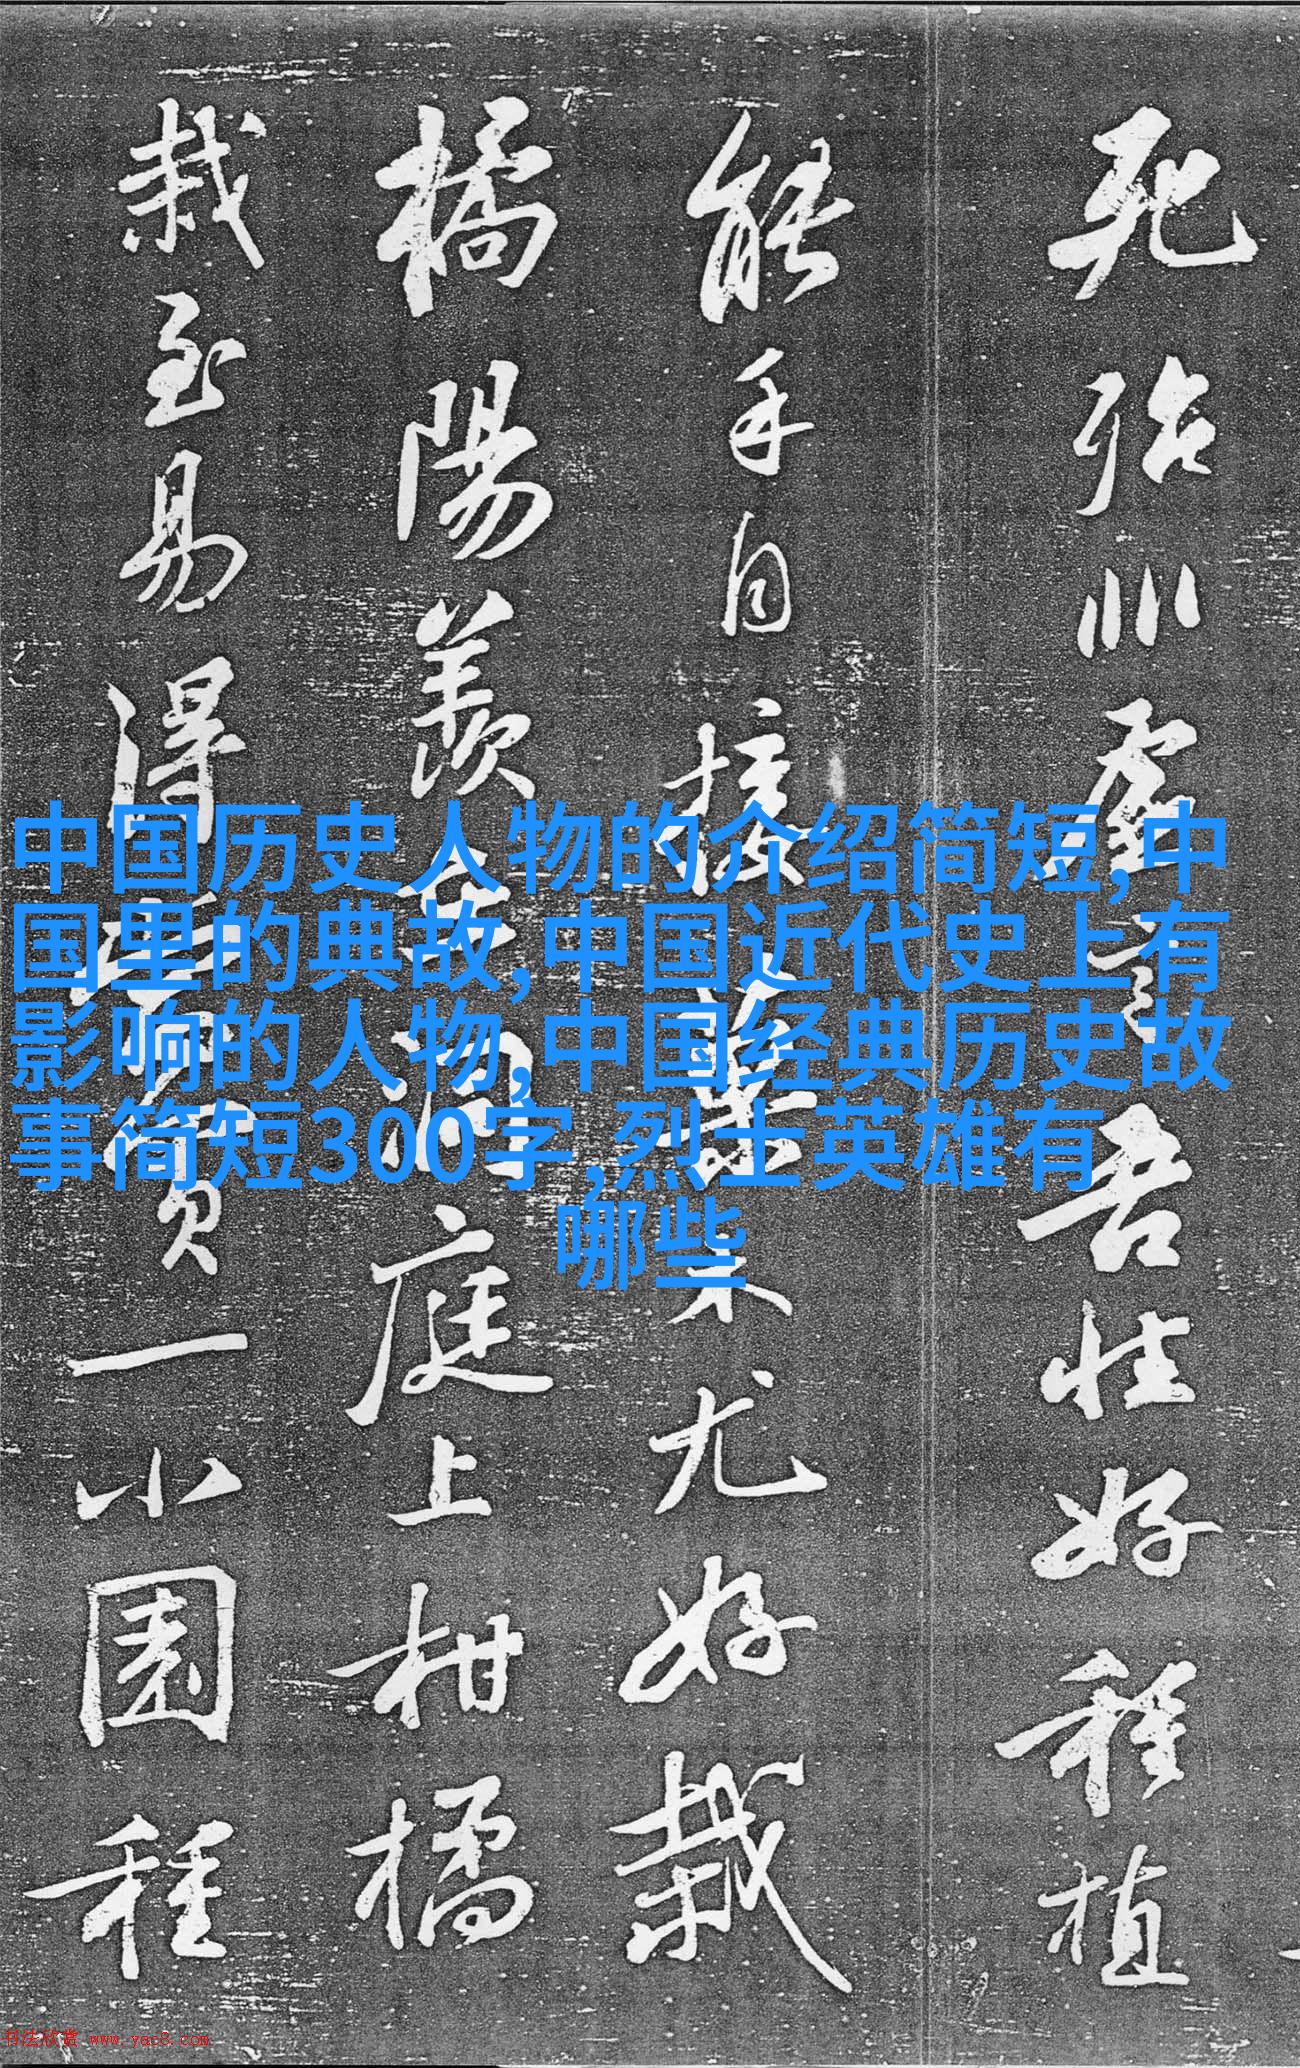 死殆非虛言吾性好種植
能手自接菓木尤好栽
橘陽羨在洞庭上柑橘
栽至易得當買一小園種
中国历史人物的介绍简短,中
国里的典故,中国近代史上有
影响的人物,中国经典历史故
事简短300字,烈士英雄有
哪些
书法欣赏 www.yac8.com